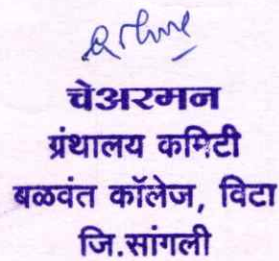 चेअरमन
ग्रंथालय कमिटी
बळवंत कॉलेज, विटा
जि.सांगली